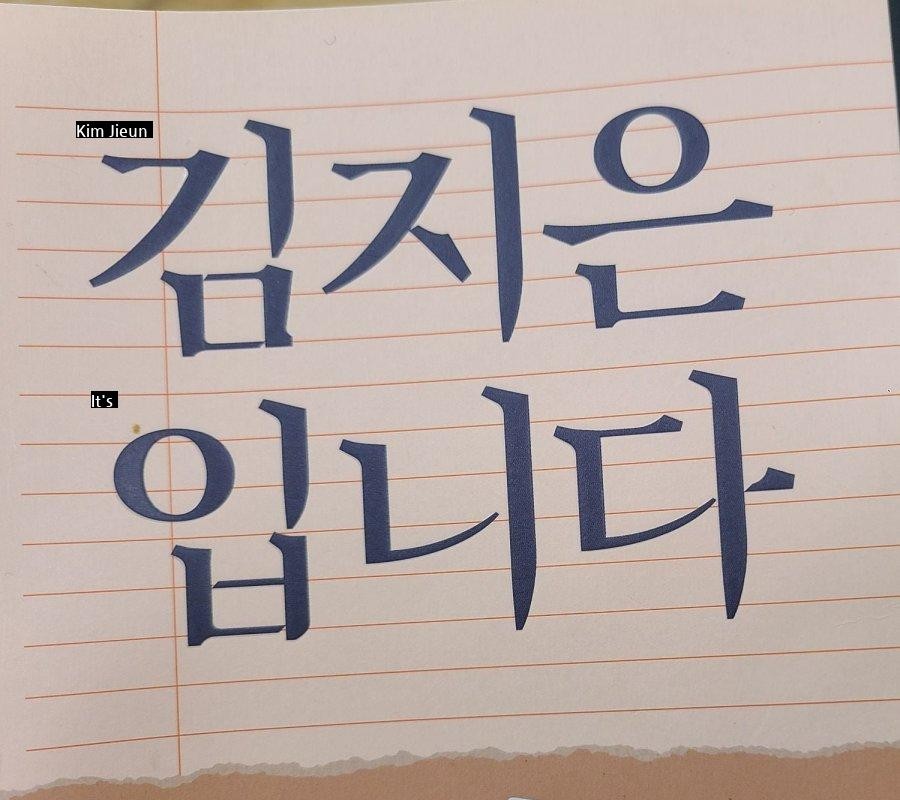 Kim Jieun
김지은
It's
입니다